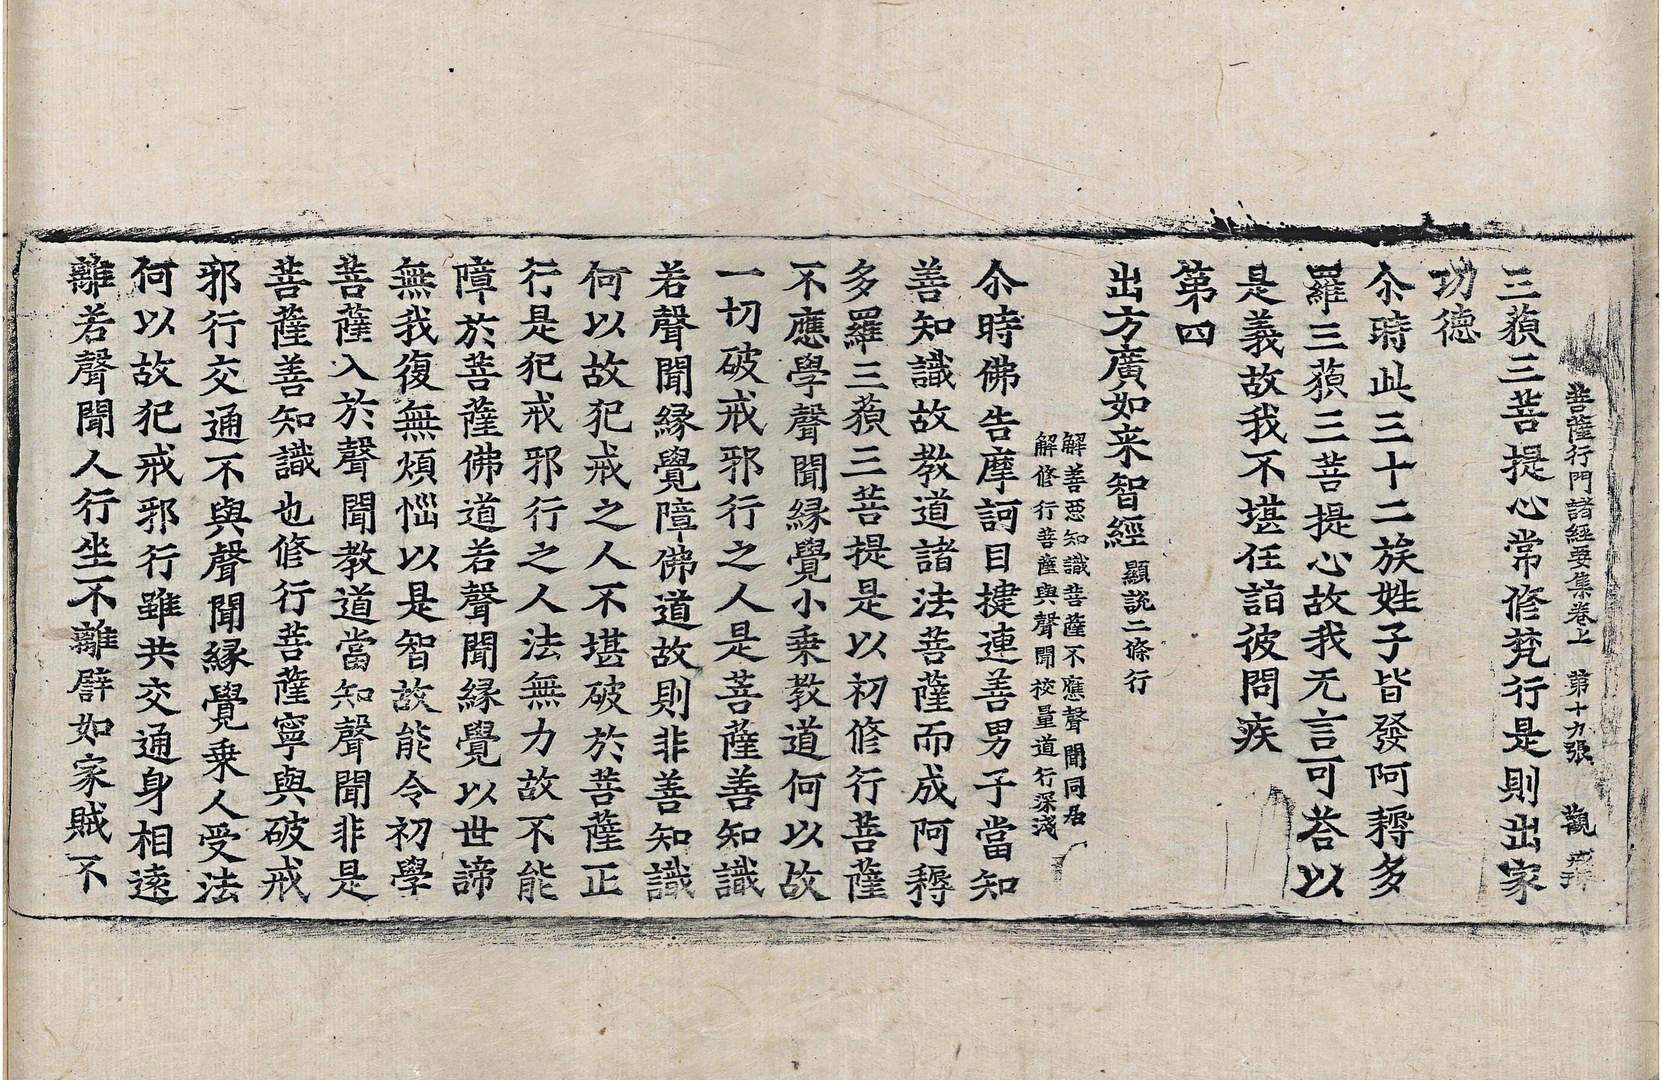 菩薩行門諸經要集卷上 第十九張 觀
三藐三菩提心常修梵行是則出家
功德
尒時此三十二族姓子皆發阿耨多
羅三藐三菩提心故我无言可荅以
是義故我不堪任詣彼問疾
第四
出方廣如来智經 顯說二條行
解善惡知識菩薩不應聲聞同居
解修行菩薩與聲聞校量道行深淺
尒時佛告摩訶目揵連善男子當知
善知識故教道諸法菩薩而成阿耨
多羅三藐三菩提是以初修行菩薩
不應學聲聞緣覺小乗教道何以故
一切破戒邪行之人是菩薩善知識
若聲聞緣覺障佛道故則非善知識
何以故犯戒之人不堪破於菩薩正
行是犯戒邪行之人法無力故不能
障於菩薩佛道若聲聞緣覺以世諦
無我復無煩惱以是智故能令初學
菩薩入於聲聞教道當知聲聞非是
菩薩善知識也修行菩薩寧與破戒
邪行交通不與聲聞緣覺乗人受法
何以故犯戒邪行雖共交通身相遠
離若聲聞人行坐不離譬如家賊不